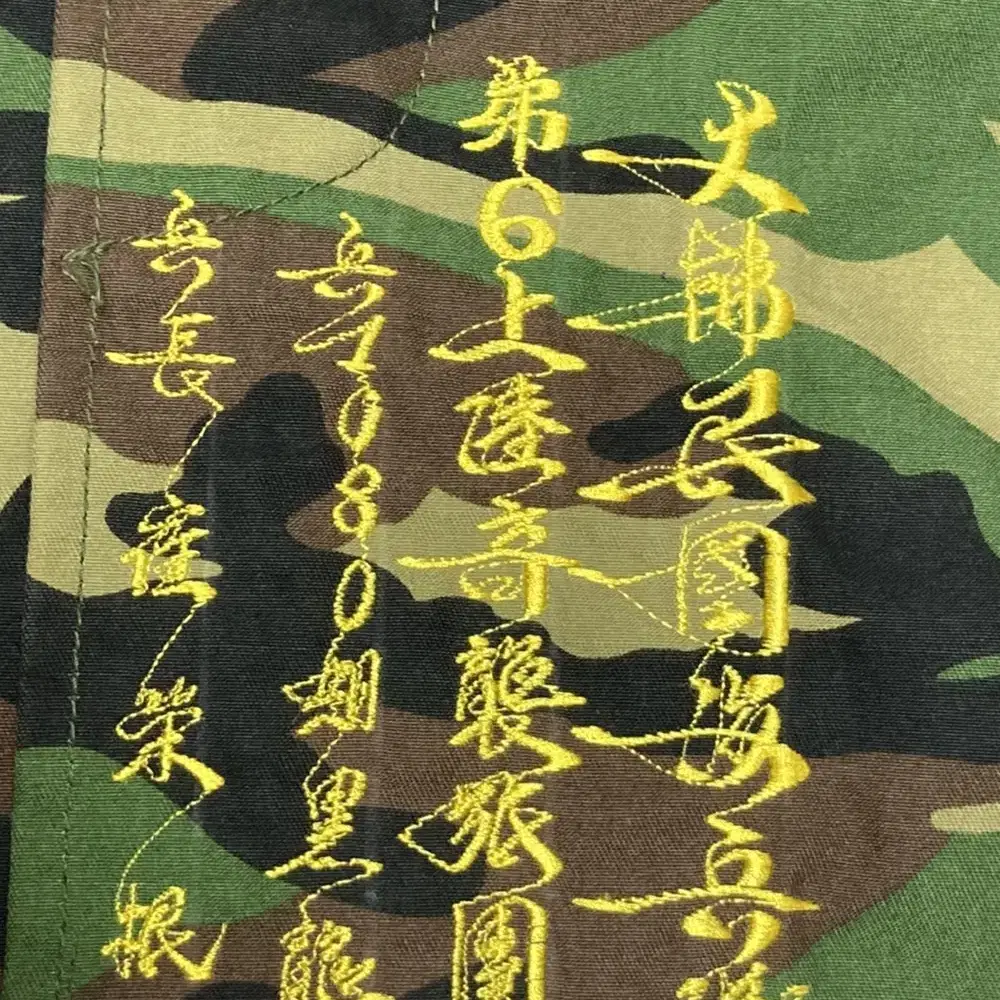 大韓民國海兵
第6上陸奇襲旅團
兵1080期黑龍
兵長榮根